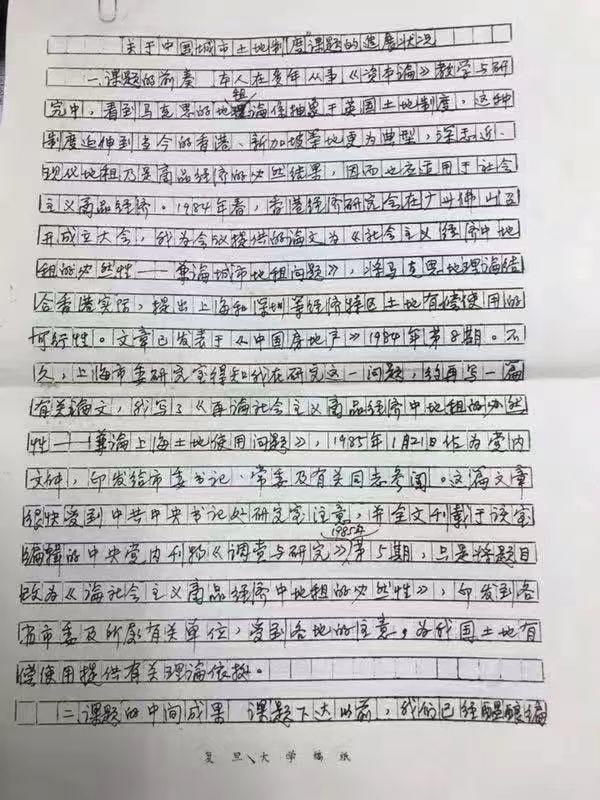 关于中国城市土地制度课题的进展状况
一、课题的前奏 本人在多年从事《资本论》教学与研
究中，看到马克思的地租理论系抽象于英国土地制度，这种
制度延伸到当今的香港、新加坡等地更为典型，
现代地租乃是商品经济的必然结果，因而也应适用于社会
主义商品经济。1984年春，香港经济研究会在广州佛山召
开成立大会，我为会议提供的论文为《社会主义经济中地
租的必然性——兼论城市地租问题》，将马克思地租理论结
合香港实际，提出上海和深圳等经济特区土地有偿使用的
可行性。文章已发表于《中国房地产》1984年第8期。不
久，上海市委研究室得知我在研究这一问题，约再写一篇
有关论文，我写了《再论社会主义商品经济中地租的必然
性——兼论上海土地使用问题》，1985年1月21日作为党内
文件，印发给市委书记、常委及有关同志参阅。这篇文章
很快受到中共中央书记处研究室注意，并全文刊载于该室
编辑的中央党内刊物《调查与研究》1985年第5期，只是将题目
改为《论社会主义商品经济中地租的必然性》，印发到各
省市委及所属有关单位，受到各地的注意，为我国土地有
偿使用提供有关理论依据。
二、课题的中间成果 课题下达以前，我们已经酝酿编
复旦大学稿纸